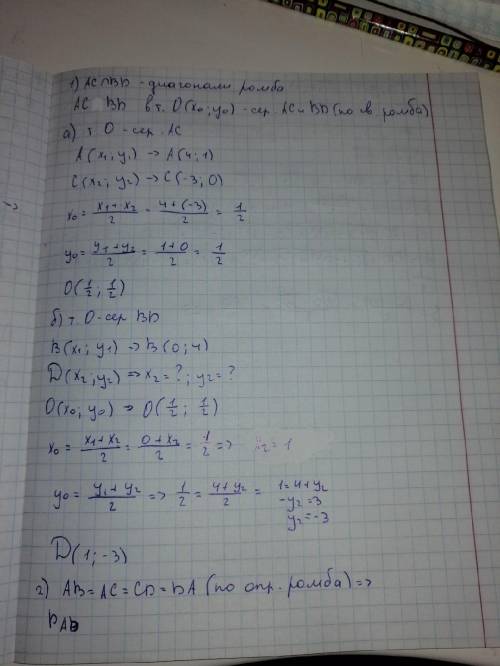 1) AC ∩ BD - диагонали ромба
AC BD в т. O(x₀; y₀) - сер. AC и BD (по св. ромба)
а) т. O - сер. AC
A(x₁; y₁) → A(4; 1)
C(x₂; y₂) → C(-3; 0)
x₀ = (x₁ + x₂)/2 = (4 + (-3))/2 = 1/2
y₀ = (y₁ + y₂)/2 = (1 + 0)/2 = 1/2
O(1/2; 1/2)
б) т. O - сер BD
B(x₁; y₁) → B(0; 4)
D(x₂; y₂) => x₂ = ?; y₂ = ?
O(x₀; y₀) → O(1/2; 1/2)
x₀ = (x₁ + x₂)/2 = (0 + x₂)/2 = 1/2 => x₂ = 1
y₀ = (y₁ + y₂)/2 => 1/2 = (4 + y₂)/2 = 1 = 4 + y₂
-y₂ = 3
y₂ = -3
D(1; -3)
2) AB = AC = CD = DA (по опр. ромба) =>
PАВ